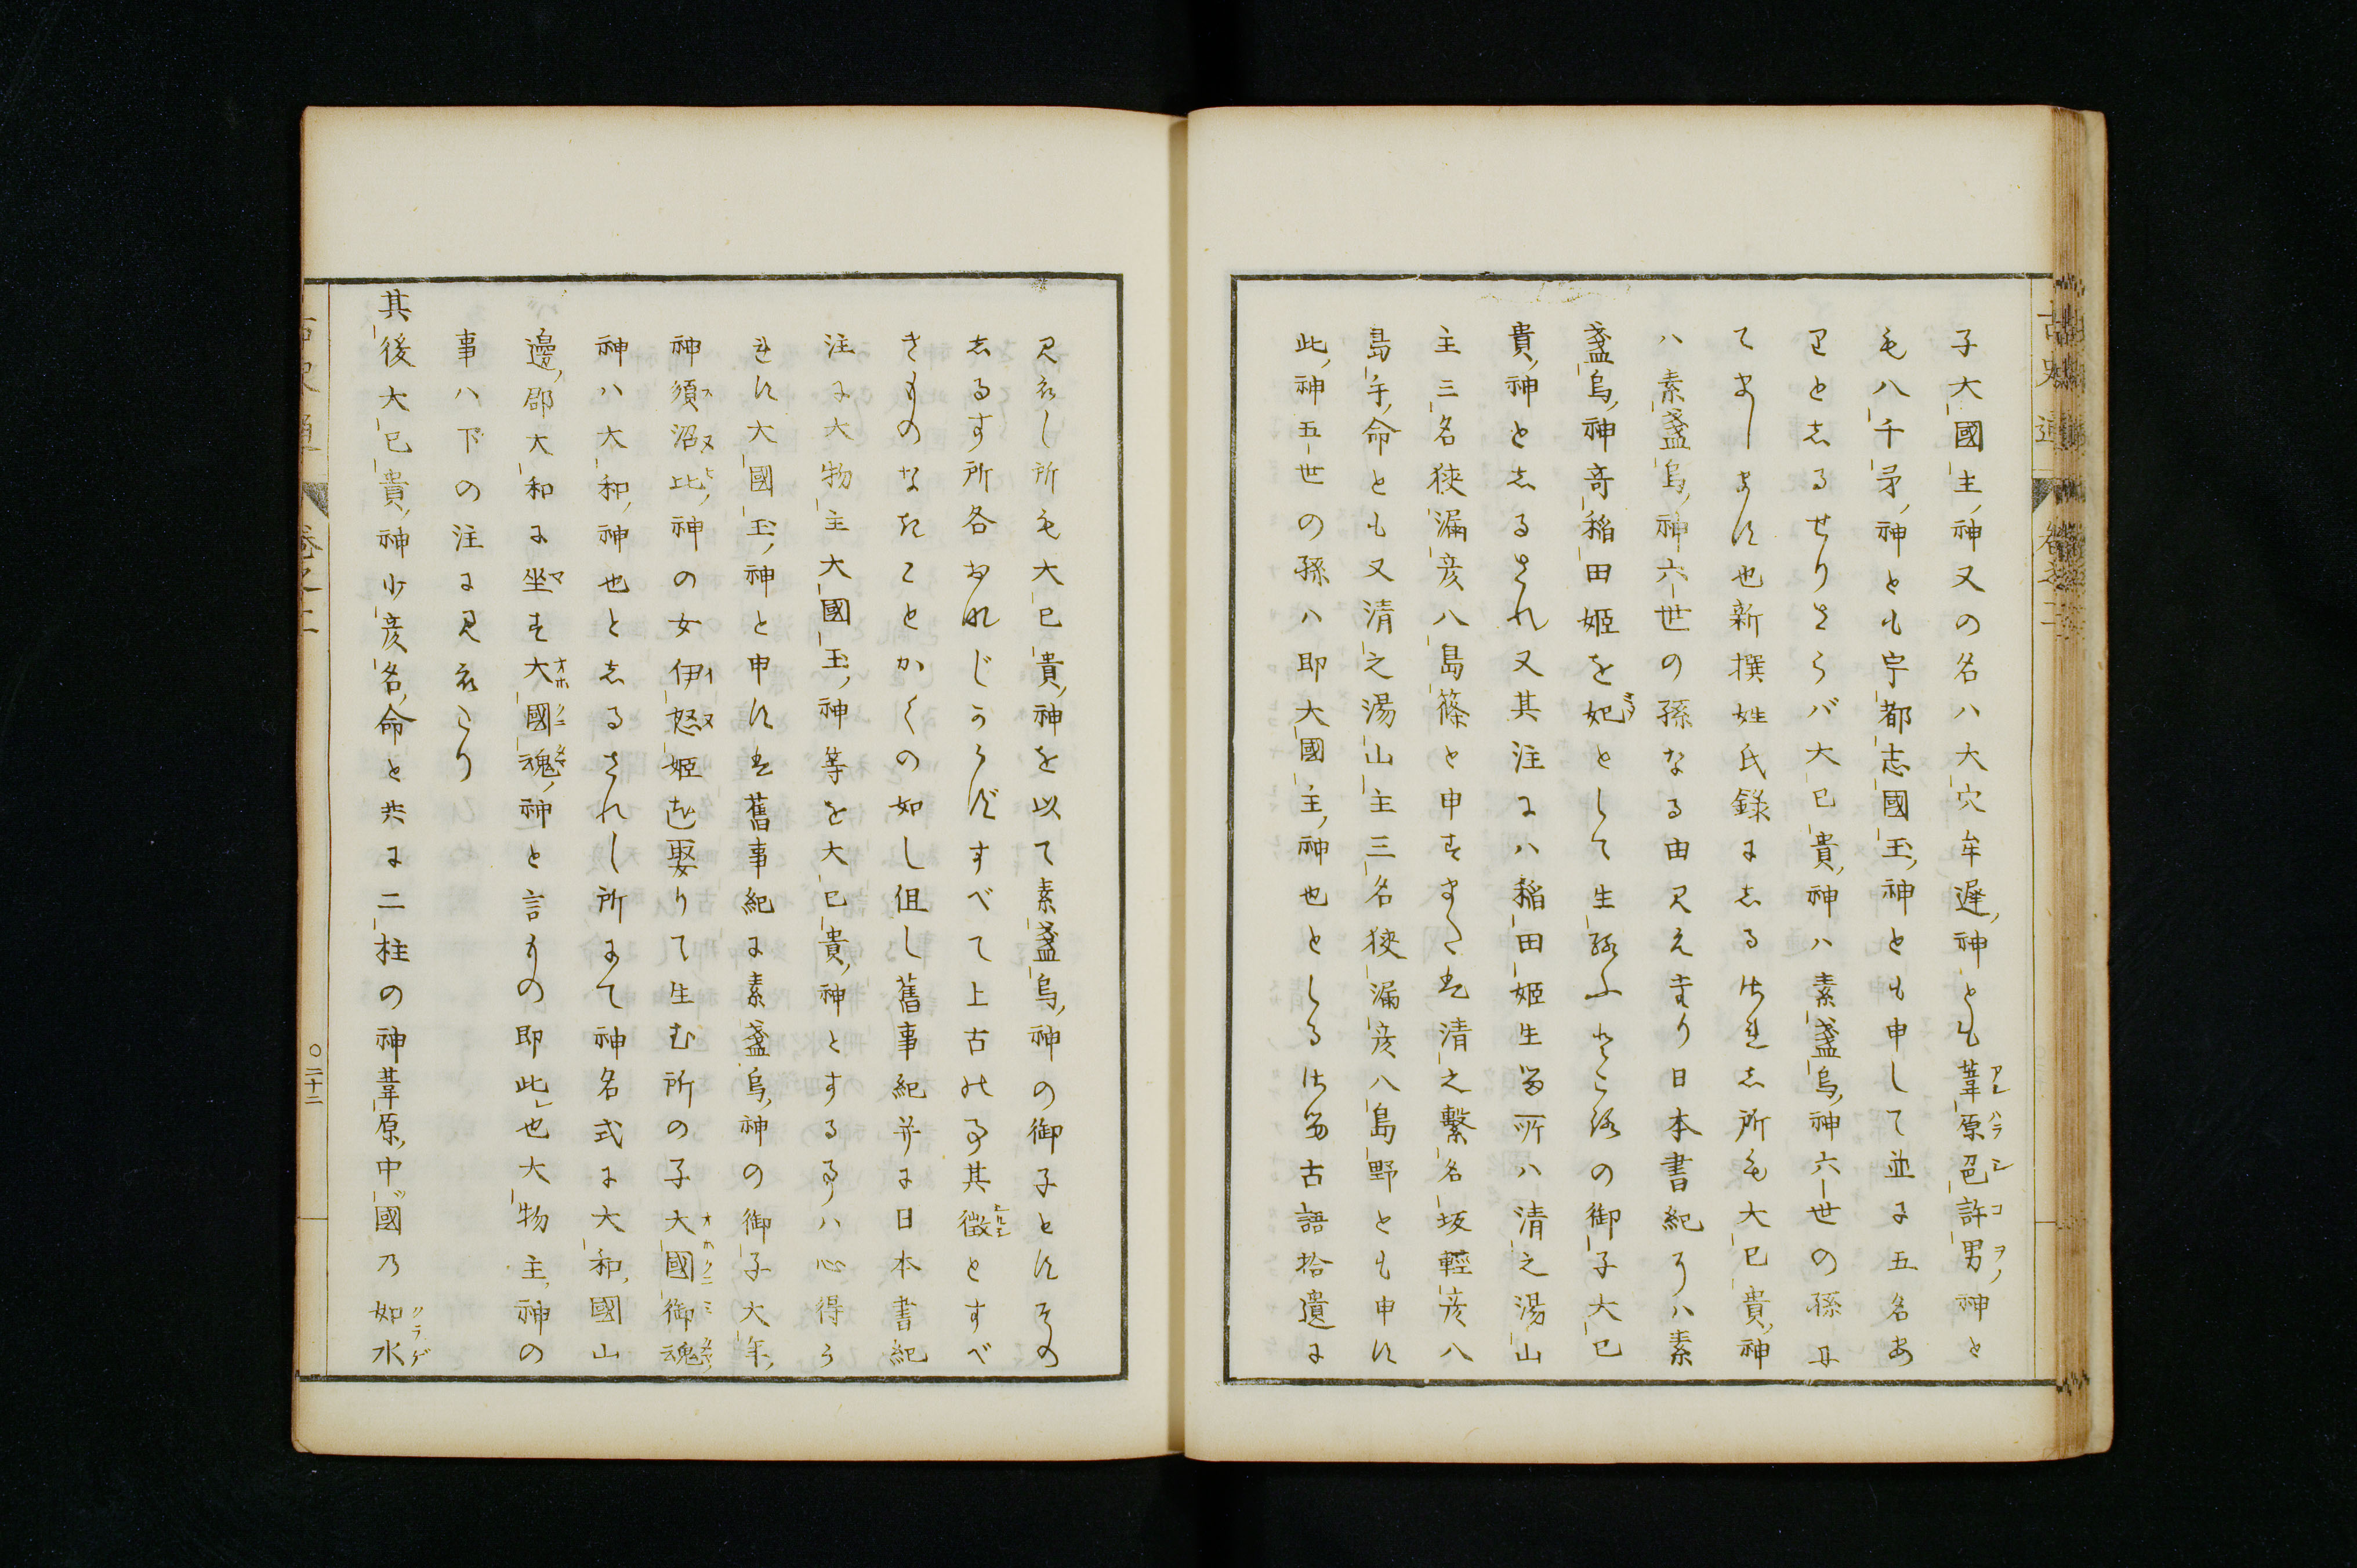 子大國主神又の名ハ大穴牟遲神とも葦原色許男神と
も八千矛神とも宇都志國玉神とも申して並に五名あ
りとしるせりさらバ大已貴神ハ素盞烏神六世の孫に
てまします也新撰姓氏錄にしるされし所も大已貴神
ハ素盞烏神六世の孫なる由見えたり日本書紀にハ素
盞烏神奇稲田姫を妃として生給ふところの御子大已
貴神としるされ又其注にハ稲田姫生る所ハ清之湯山
主三名狭漏彦八島篠と申すまたは清之繫名坂輕彦八
島手命とも又清之湯山主三名狭漏彦八島野とも申す
此神五世の孫ハ即大國主神也としるせる古語拾遺に
見えし所も大已貴神を以て素盞烏神の御子とすその
しるす所各おなじからずすべて上古の事其徴とすべ
きものなきことかくの如し但し舊事紀并に日本書紀
注に大物主大國玉神等を大已貴神とする事ハ心得ら
れず大國玉神と申すは舊事紀に素盞烏神の御子大年
神須沼比神の女伊怒姫を娶りて生む所の子大國御魂
神ハ大和神也としるされし所にて神名式に大和國山
邊郡大和に坐す大國魂神と言もの即此也大物主神の
事ハ下の注に見えたり
其後大已貴神少彦名命と共に二柱の神葦原中國乃如水
古史通
卷之二
〇二十二